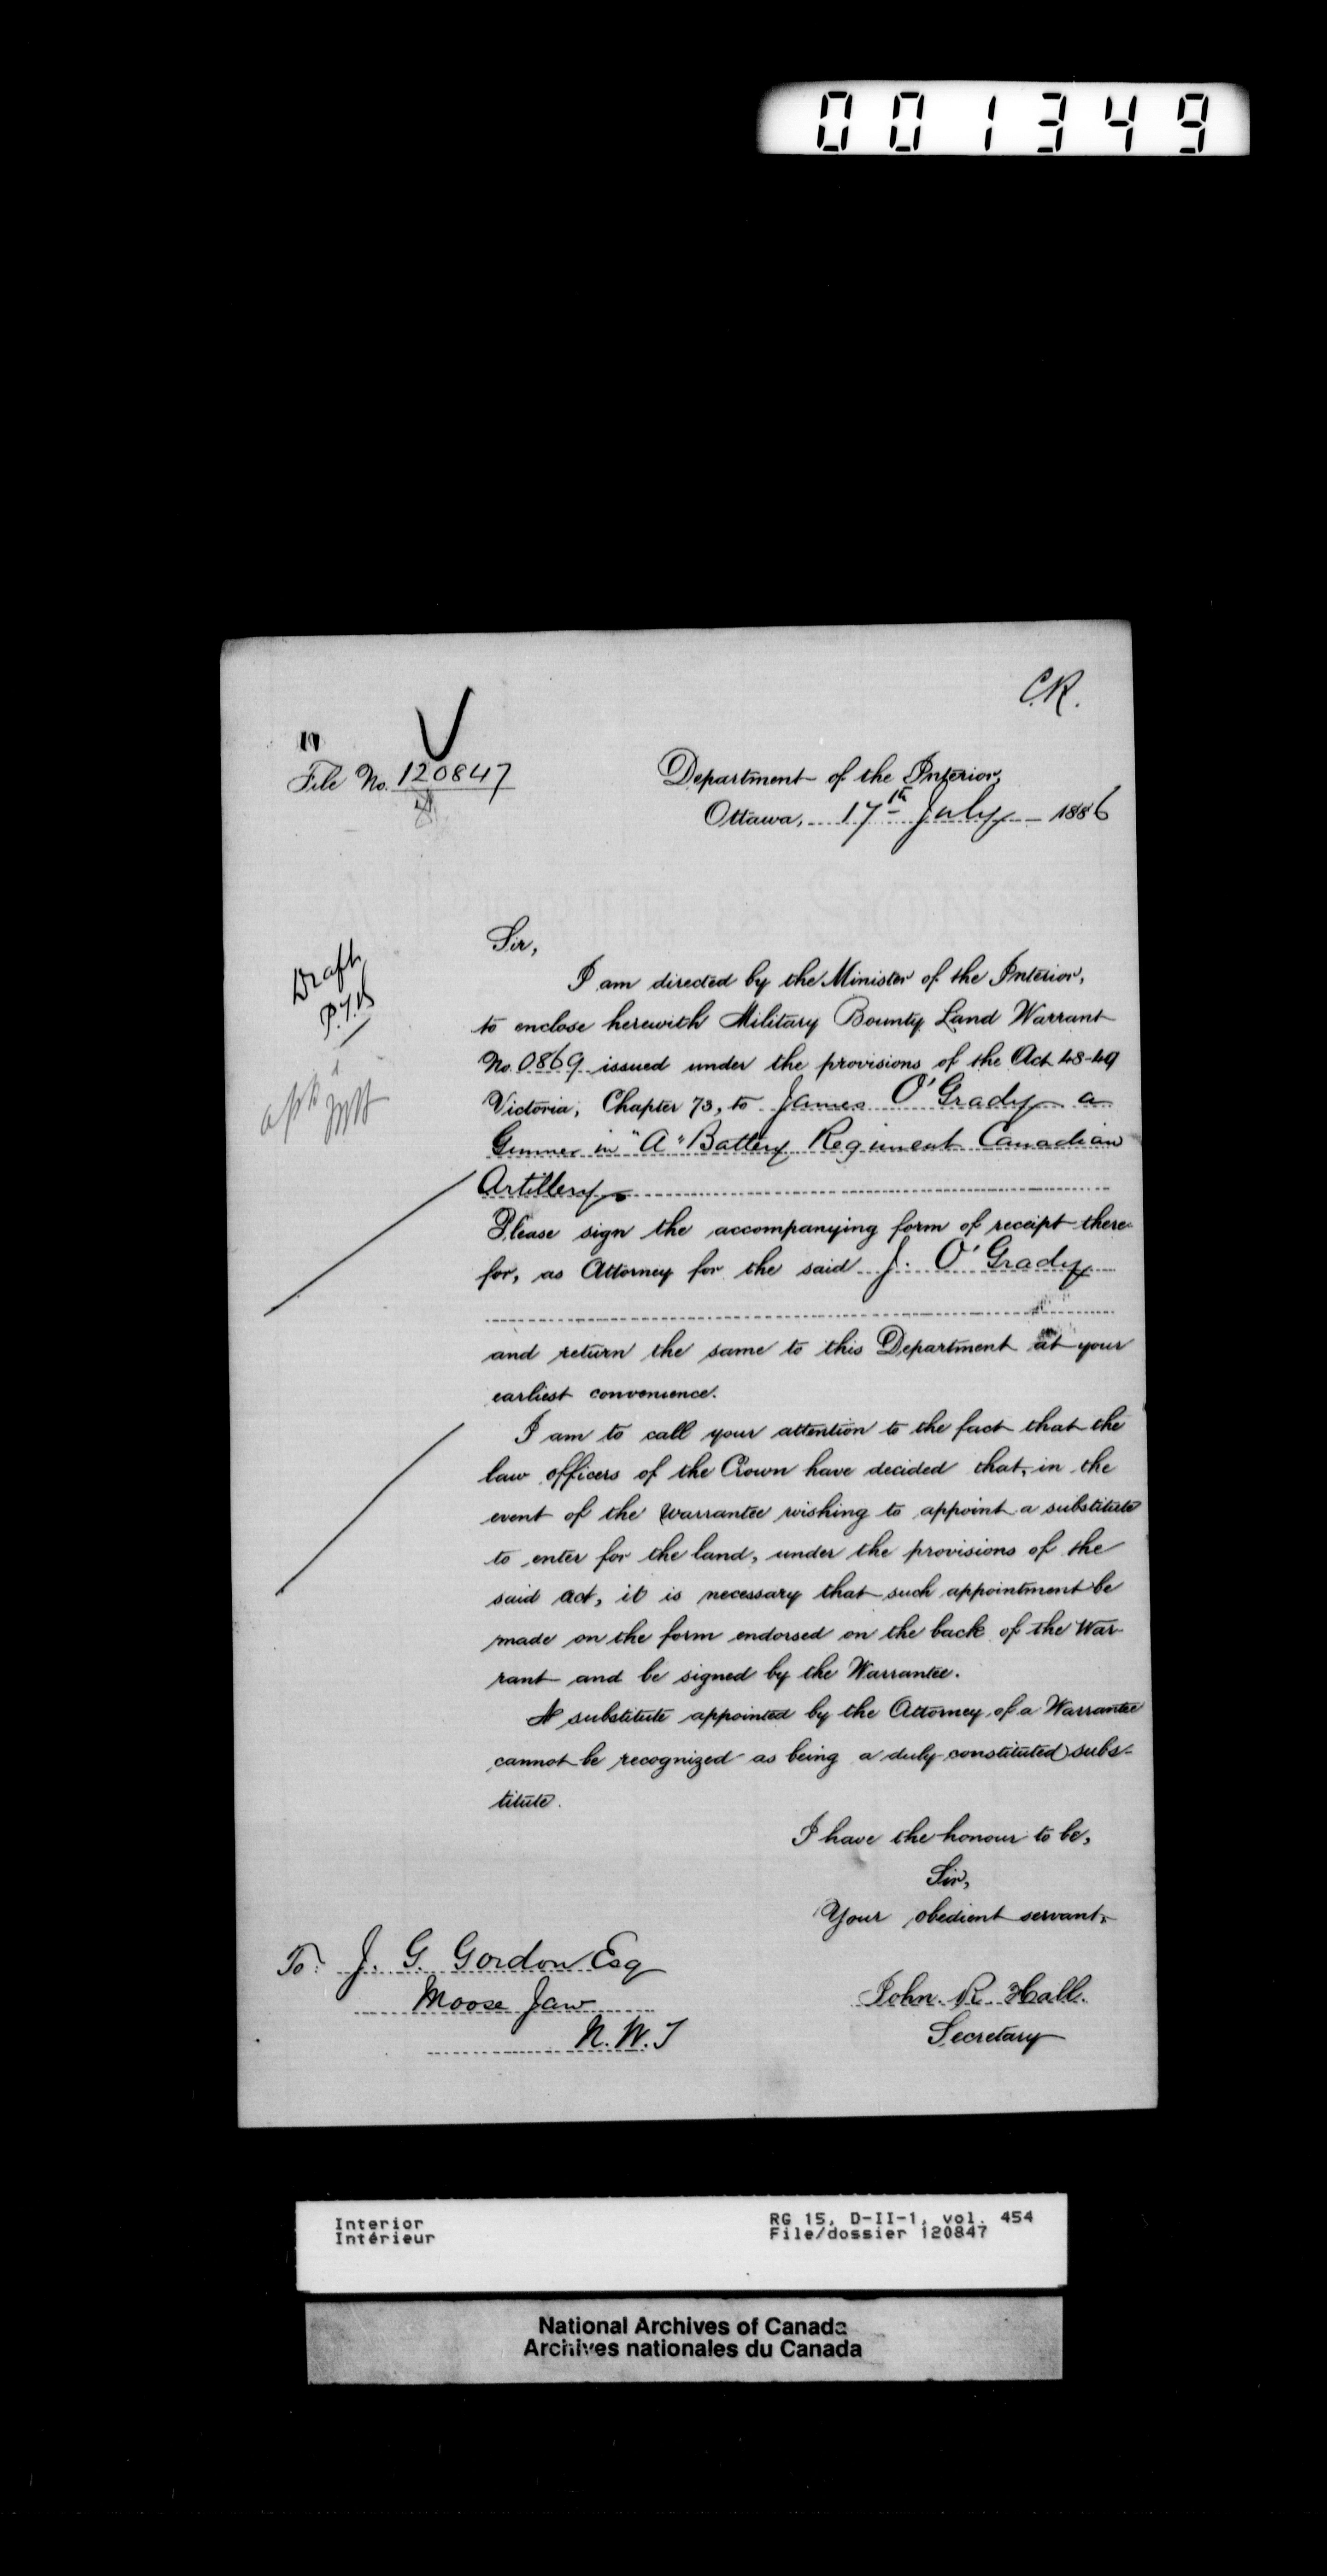 001349
C.R.
File No. 120847
Department of the Interior,
Ottawa, 17th July 1886
Sir,
Draft
I am directed by the Minister of the Interior,
to enclose herewith Military Bounty Land Warrant
No. 0869 issued under the provisions of the Act 48-49
Victoria, Chapter 73, to James O'Grady a
Gunner in "A" Battery Regiment Canadian
Artillery
Please sign the accompanying form of receipt there-
for, as Attorney for the said J. O'Grady
and return the same to this Department at your
earliest convenience.
I am to call your attention to the fact that the
law officers of the Crown have decided that, in the
event of the Warrantee wishing to appoint a substitute
to enter for the land, under the provisions of the
said act, it is necessary that such appointment be
made on the form endorsed on the back of the War-
rant and be signed by the Warrantee.
A substitute appointed by the Attorney of a Warrantee
cannot be recognized as being a duly constituted subs-
titute.
I have the honour to be,
Sir,
Your obedient servant,
To: J. G. Gordon Esq
Moose Jaw
N.W.T
John R. Hall.
Secretary
Interior
Intérieur
RG 15, D-II-1, vol. 454
File/dossier 120847
National Archives of Canada
Archives nationales du Canada